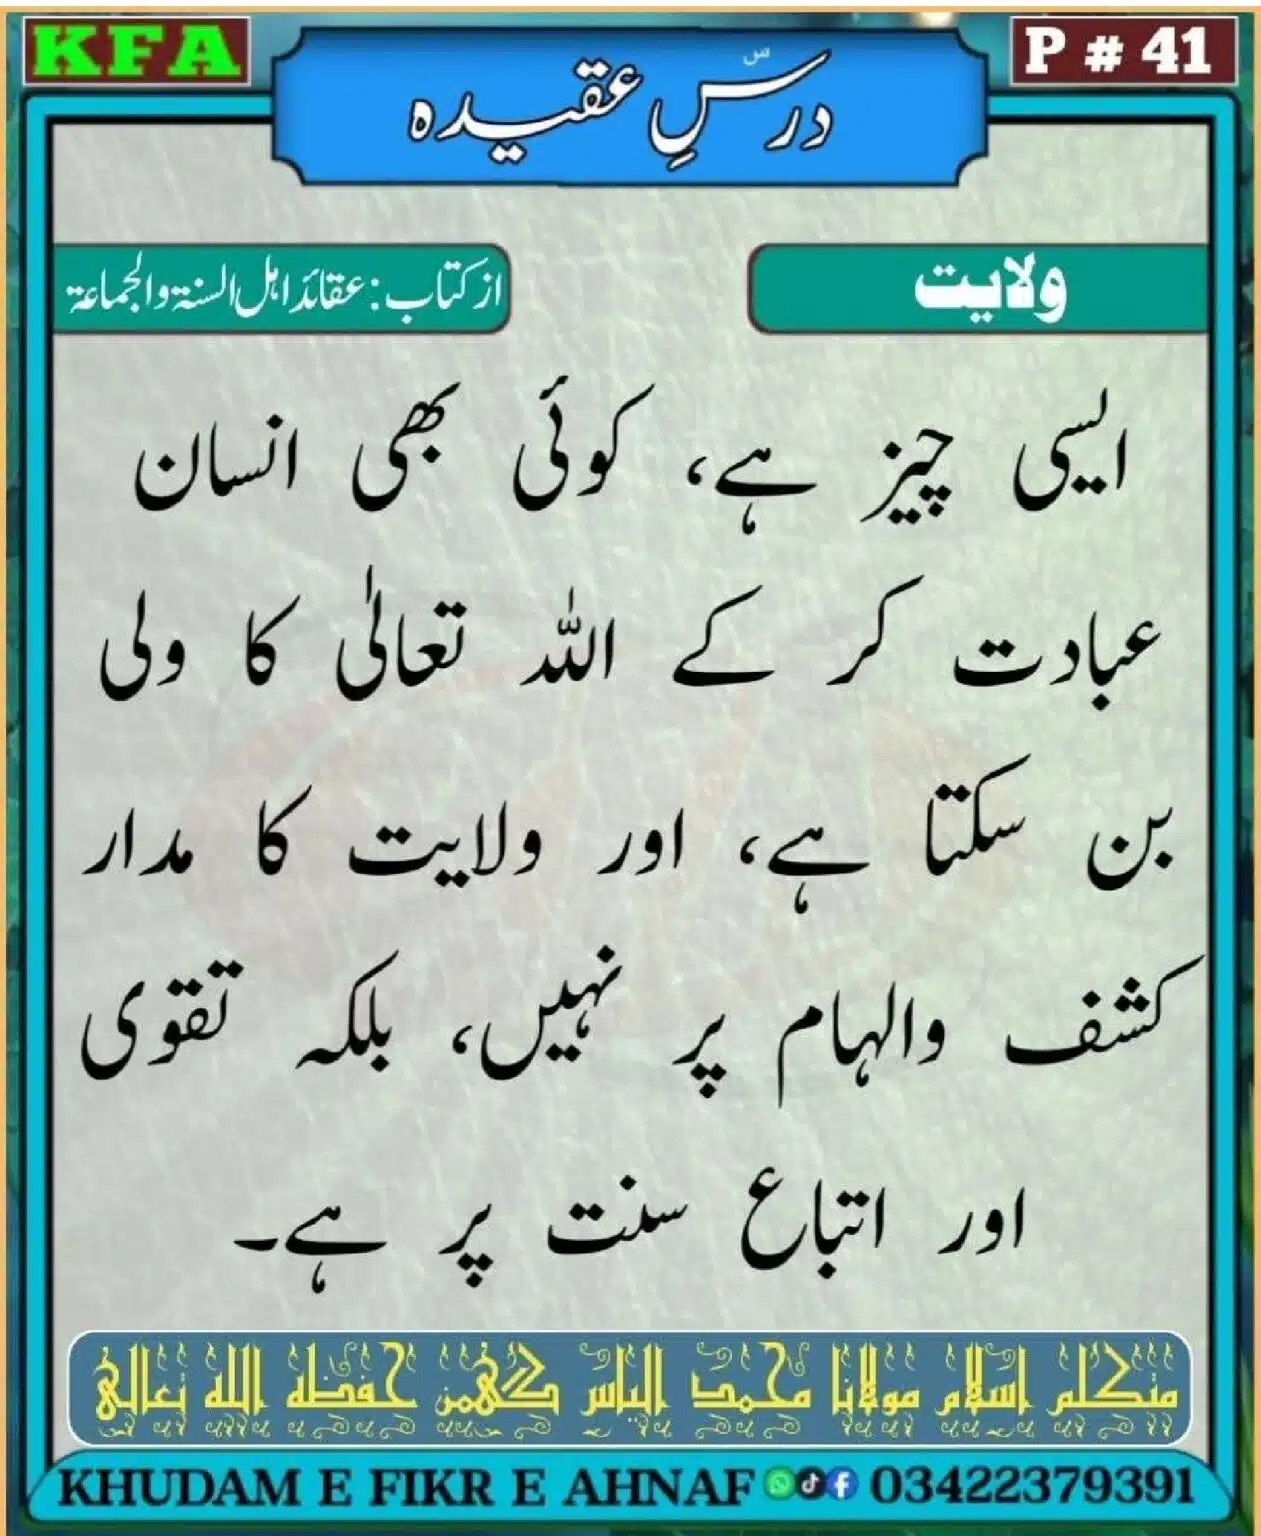 KFA
درسِ عقیدہ
P # 41
ولایت
از کتاب: عقائد اہل السنۃ والجماعۃ
ایسی چیز ہے، کوئی بھی انسان
عبادت کر کے اللہ تعالیٰ کا ولی
بن سکتا ہے، اور ولایت کا مدار
کشف والہام پر نہیں، بلکہ تقوی
اور اتباع سنت پر ہے۔
متکلم اسلام مولانا محمد الیاس گھمن حفظہ اللہ تعالی
KHUDAM E FIKR E AHNAF 03422379391